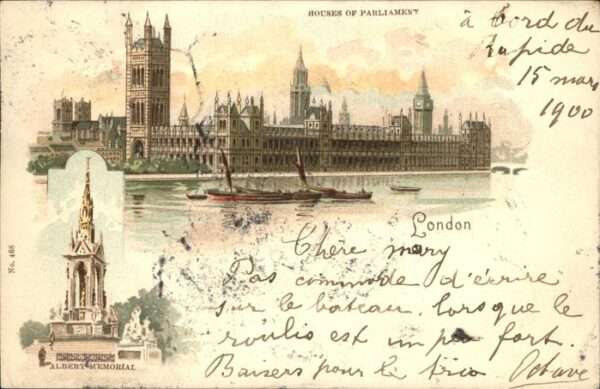 HOUSES OF PARLIAMENT
à bord du
Rapide
15 mars
1900
London
Chère mary
Pas commode d'écrire
sur le bateau, lorsque le
roulis est un peu fort.
Baisers pour le trio Octave
No. 466
ALBERT MEMORIAL